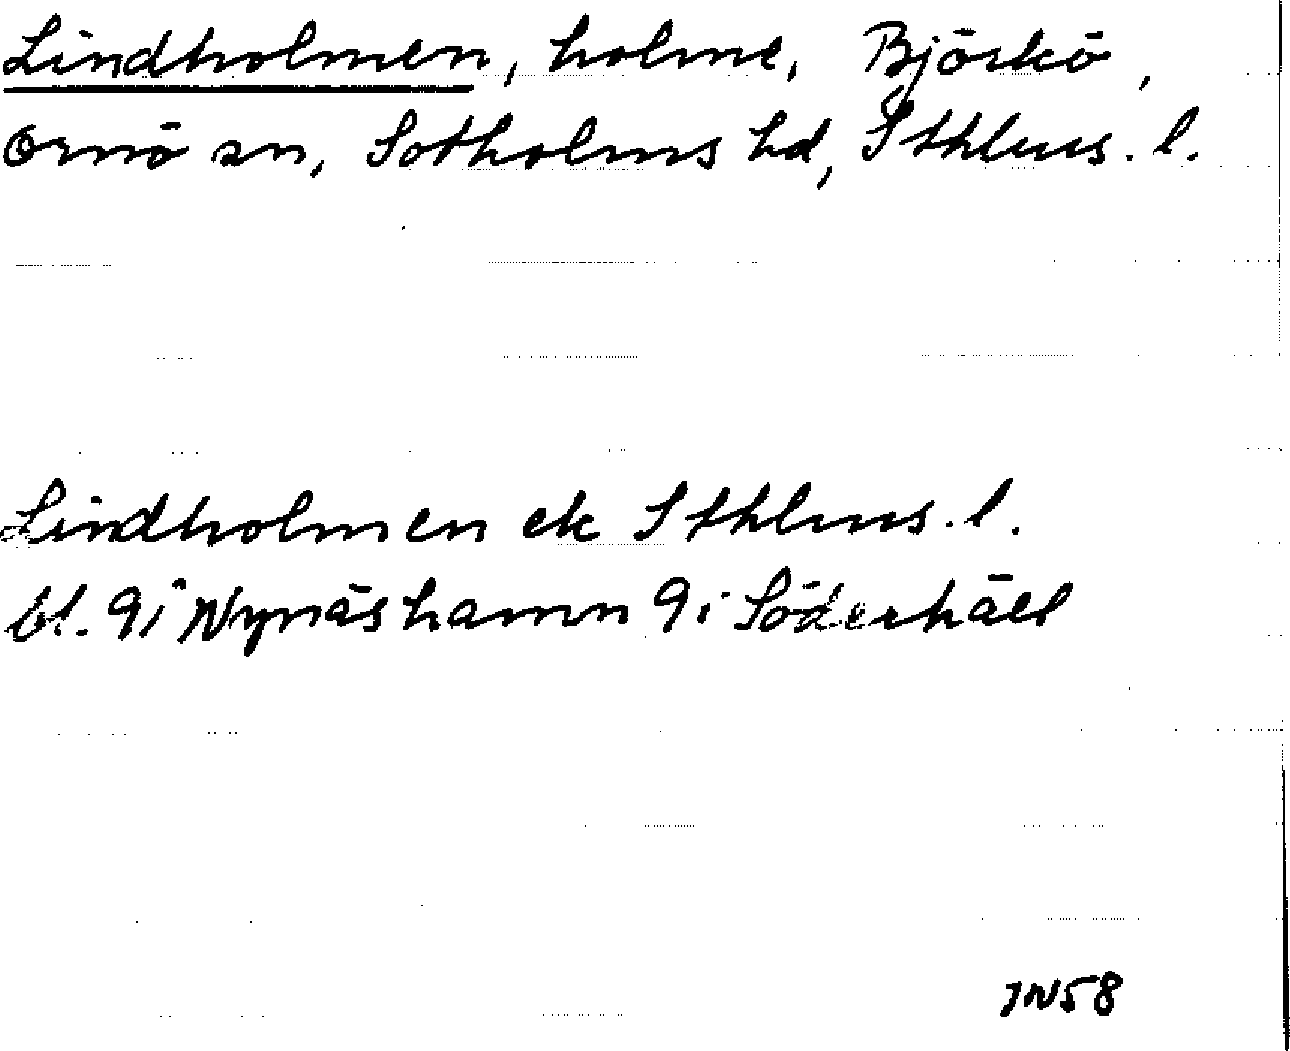 Lindholmen, holme, Björkö,
Ornö sn, Sotholms hd, Sthlms. l.
Lindholmen ek Sthlms. l.
bl. 9i Nynäshamn 9i Söderhäll
JN58